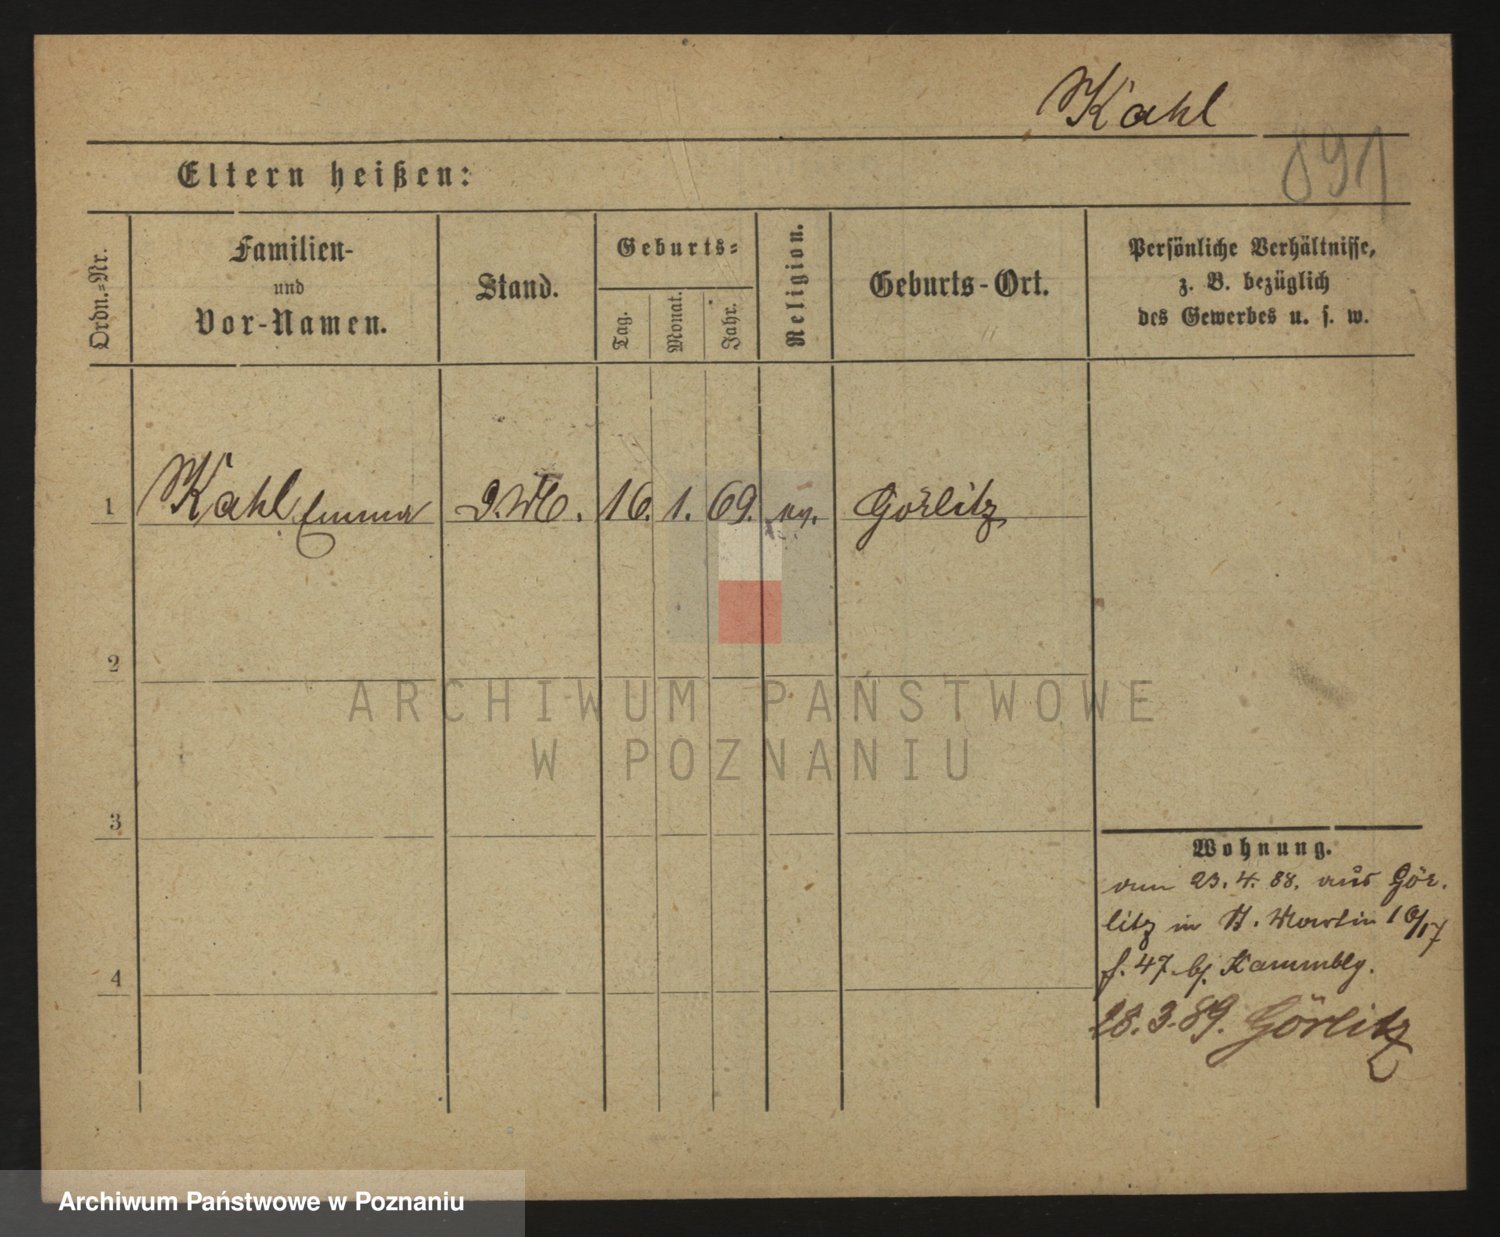 Kahl
891
Eltern heißen:
Ordn.-Nr.
Familien-
und
Vor-Namen.
Stand.
Geburts-
Tag.
Monat.
Jahr.
Religion.
Geburts-Ort.
Persönliche Verhältnisse,
z. B. bezüglich
des Gewerbes u. s. w.
1 Kahl Emma D.M. 16. 1. 69. ev. Görlitz
2
3
4
Wohnung.
am 23.4.88. aus Gör-
litz in St. Martin 16/17
f. 47 bj Kammblg.
28.3.89. Görlitz
ARCHIWUM PAŃSTWOWE
W POZNANIU
Archiwum Państwowe w Poznaniu